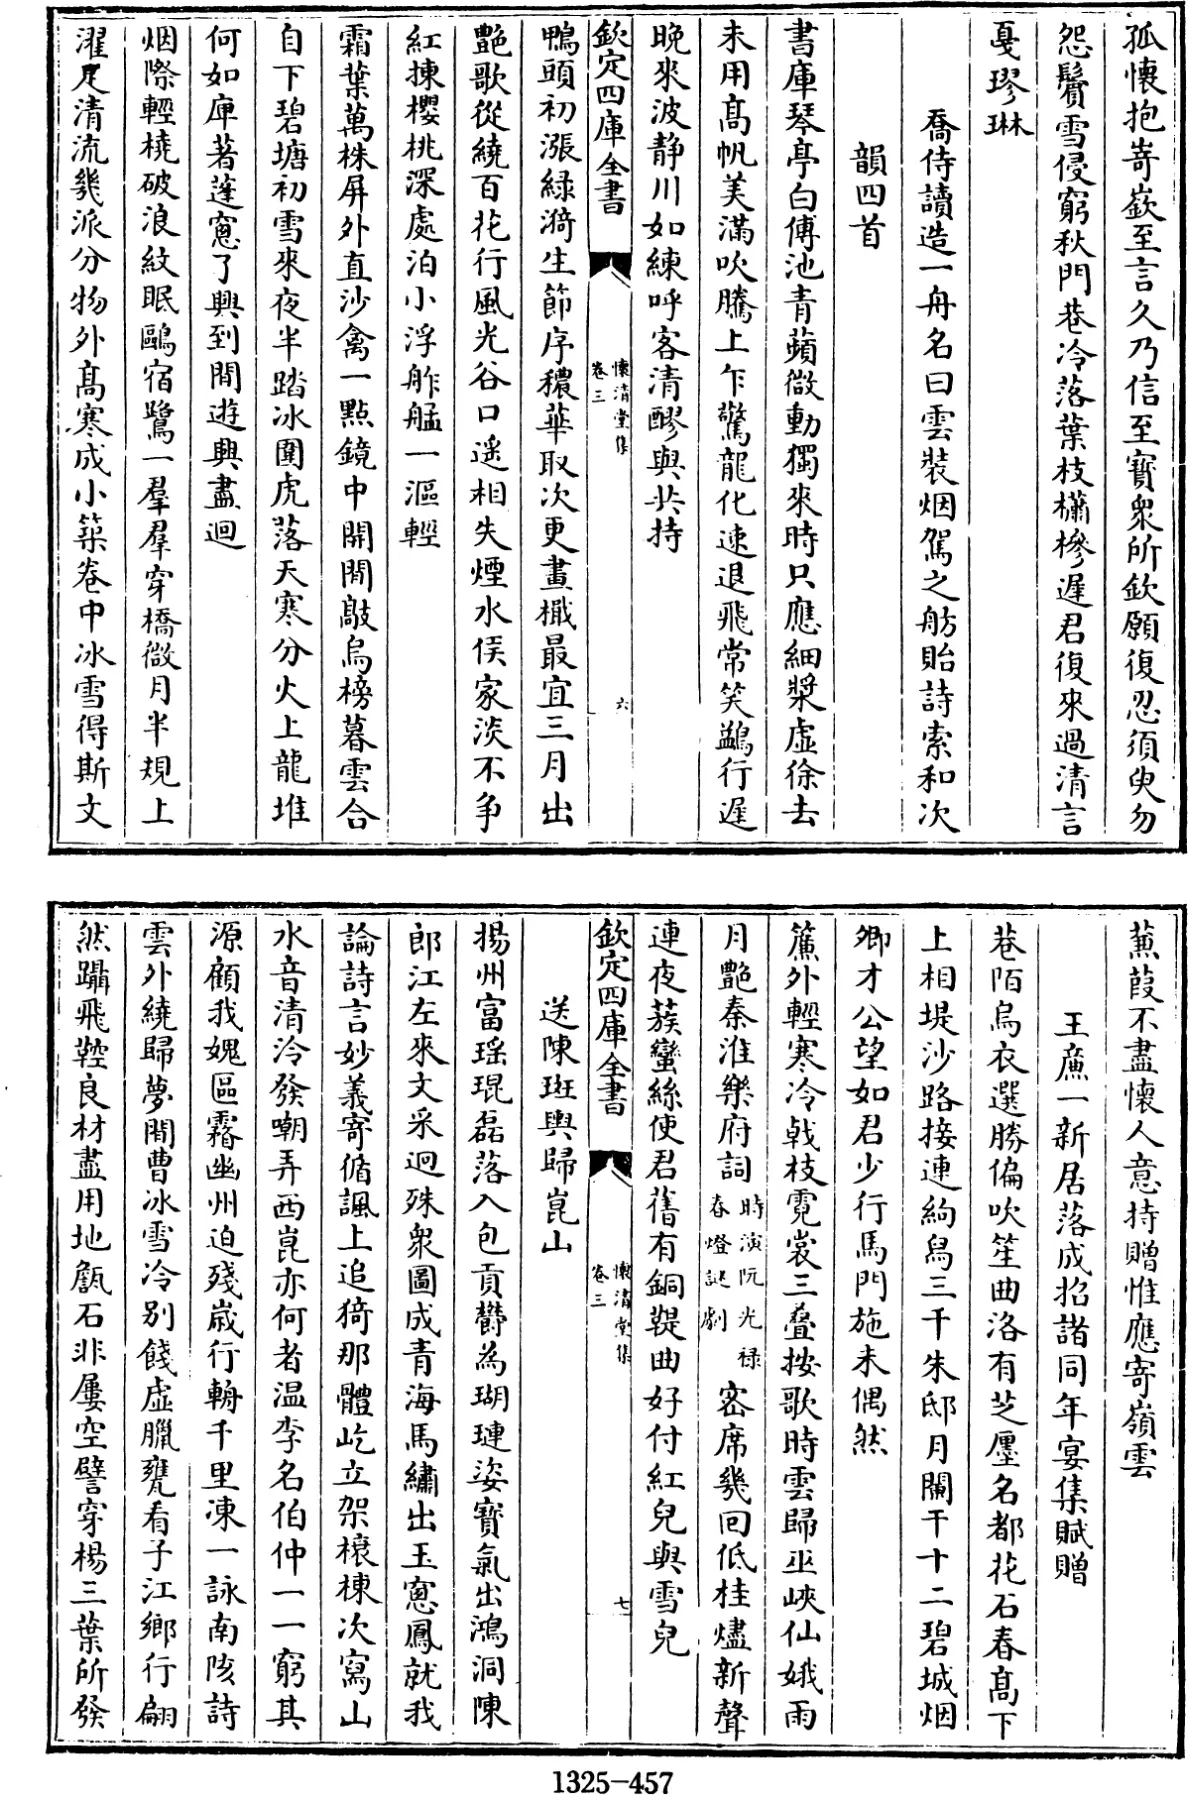 孤懷抱嵜嶔至言久乃信至寳衆所欽願復忍須臾勿
怨鬢雪侵窮秋門巷冷落葉枝櫹槮遲君復來過清言
戞璆琳
喬侍讀造一舟名曰雲裝烟駕之舫貽詩索和次
韻四首
書庫琴亭白傅池青蘋微動獨來時只應細槳虛徐去
未用髙帆美滿吹騰上乍驚龍化速退飛常笑鷁行遲
晚來波静川如練呼客清醪與共持
欽定四庫全書
懷清堂集
卷三
六
鴨頭初漲緑漪生節序穠華取次更畫檝最宜三月出
艶歌從繞百花行風光谷口遥相失煙水侯家淡不争
紅揀櫻桃深處泊小浮舴艋一漚輕
霜葉萬株屏外直沙禽一點鏡中開閒敲烏榜暮雲合
自下碧塘初雪來夜半踏冰圍虎落天寒分火上龍堆
何如庳著蓬窻了興到閒遊興盡迴
烟際輕橈破浪紋眠鷗宿鷺一羣羣穿橋微月半規上
濯足清流幾派分物外髙寒成小築卷中冰雪得斯文
蒹葭不盡懷人意持贈惟應寄嶺雲
王廌一新居落成招諸同年宴集賦贈
巷陌烏衣選勝偏吹笙曲洛有芝廛名都花石春髙下
上相堤沙路接連絢舄三千朱邸月闌干十二碧城烟
卿才公望如君少行馬門施未偶然
簾外輕寒冷戟枝霓裳三叠按歌時雲歸巫峽仙娥雨
月艶秦淮樂府詞時演阮光禄春燈謎劇密席幾回低桂燼新聲
連夜蔟蠻絲使君舊有銅鞮曲好付紅兒與雪兒
欽定四庫全書
懷清堂集
卷三
七
送陳斑輿歸崑山
揚州富瑤琨磊落入包貢欝為瑚璉姿寳氣出鴻洞陳
郎江左來文采迥殊衆圖成青海馬繡出玉窻鳳就我
論詩言妙義寄循諷上追猗那體屹立架榱棟次寫山
水音清泠發嘲弄西崑亦何者温李名伯仲一一窮其
源顧我媿區霿幽州迫殘歲行輈千里凍一詠南陔詩
雲外繞歸夢閒曹冰雪冷别餞虛臘甕看子江鄉行翩
然躡飛鞚良材盡用地甒石非屢空譬穿楊三葉所發
1325-457